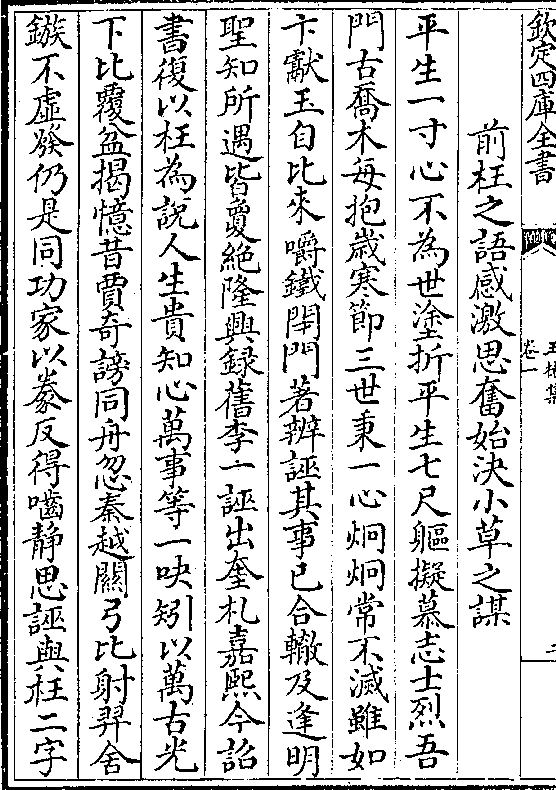 欽定四庫全書
卷一
前枉之語感激思奮始決小草之謀
平生一寸心不為世塗折平生七尺軀擬慕志士烈吾
門古喬木每抱歲寒節三世秉一心炯炯常不滅雖如
卞獻玉自比來嚼鐵閉門著辨誣其事已合轍及逢明
聖知所遇皆夐絶隆興録舊李一誣出奎札嘉熙今詔
書復以枉為説人生貴知心萬事等一吷矧以萬古光
下比覆盆揭憶昔賈奇謗同舟忽秦越關弓比射羿舍
鏃不虚發仍是同功家以豢反得嚙静思誣與枉二字